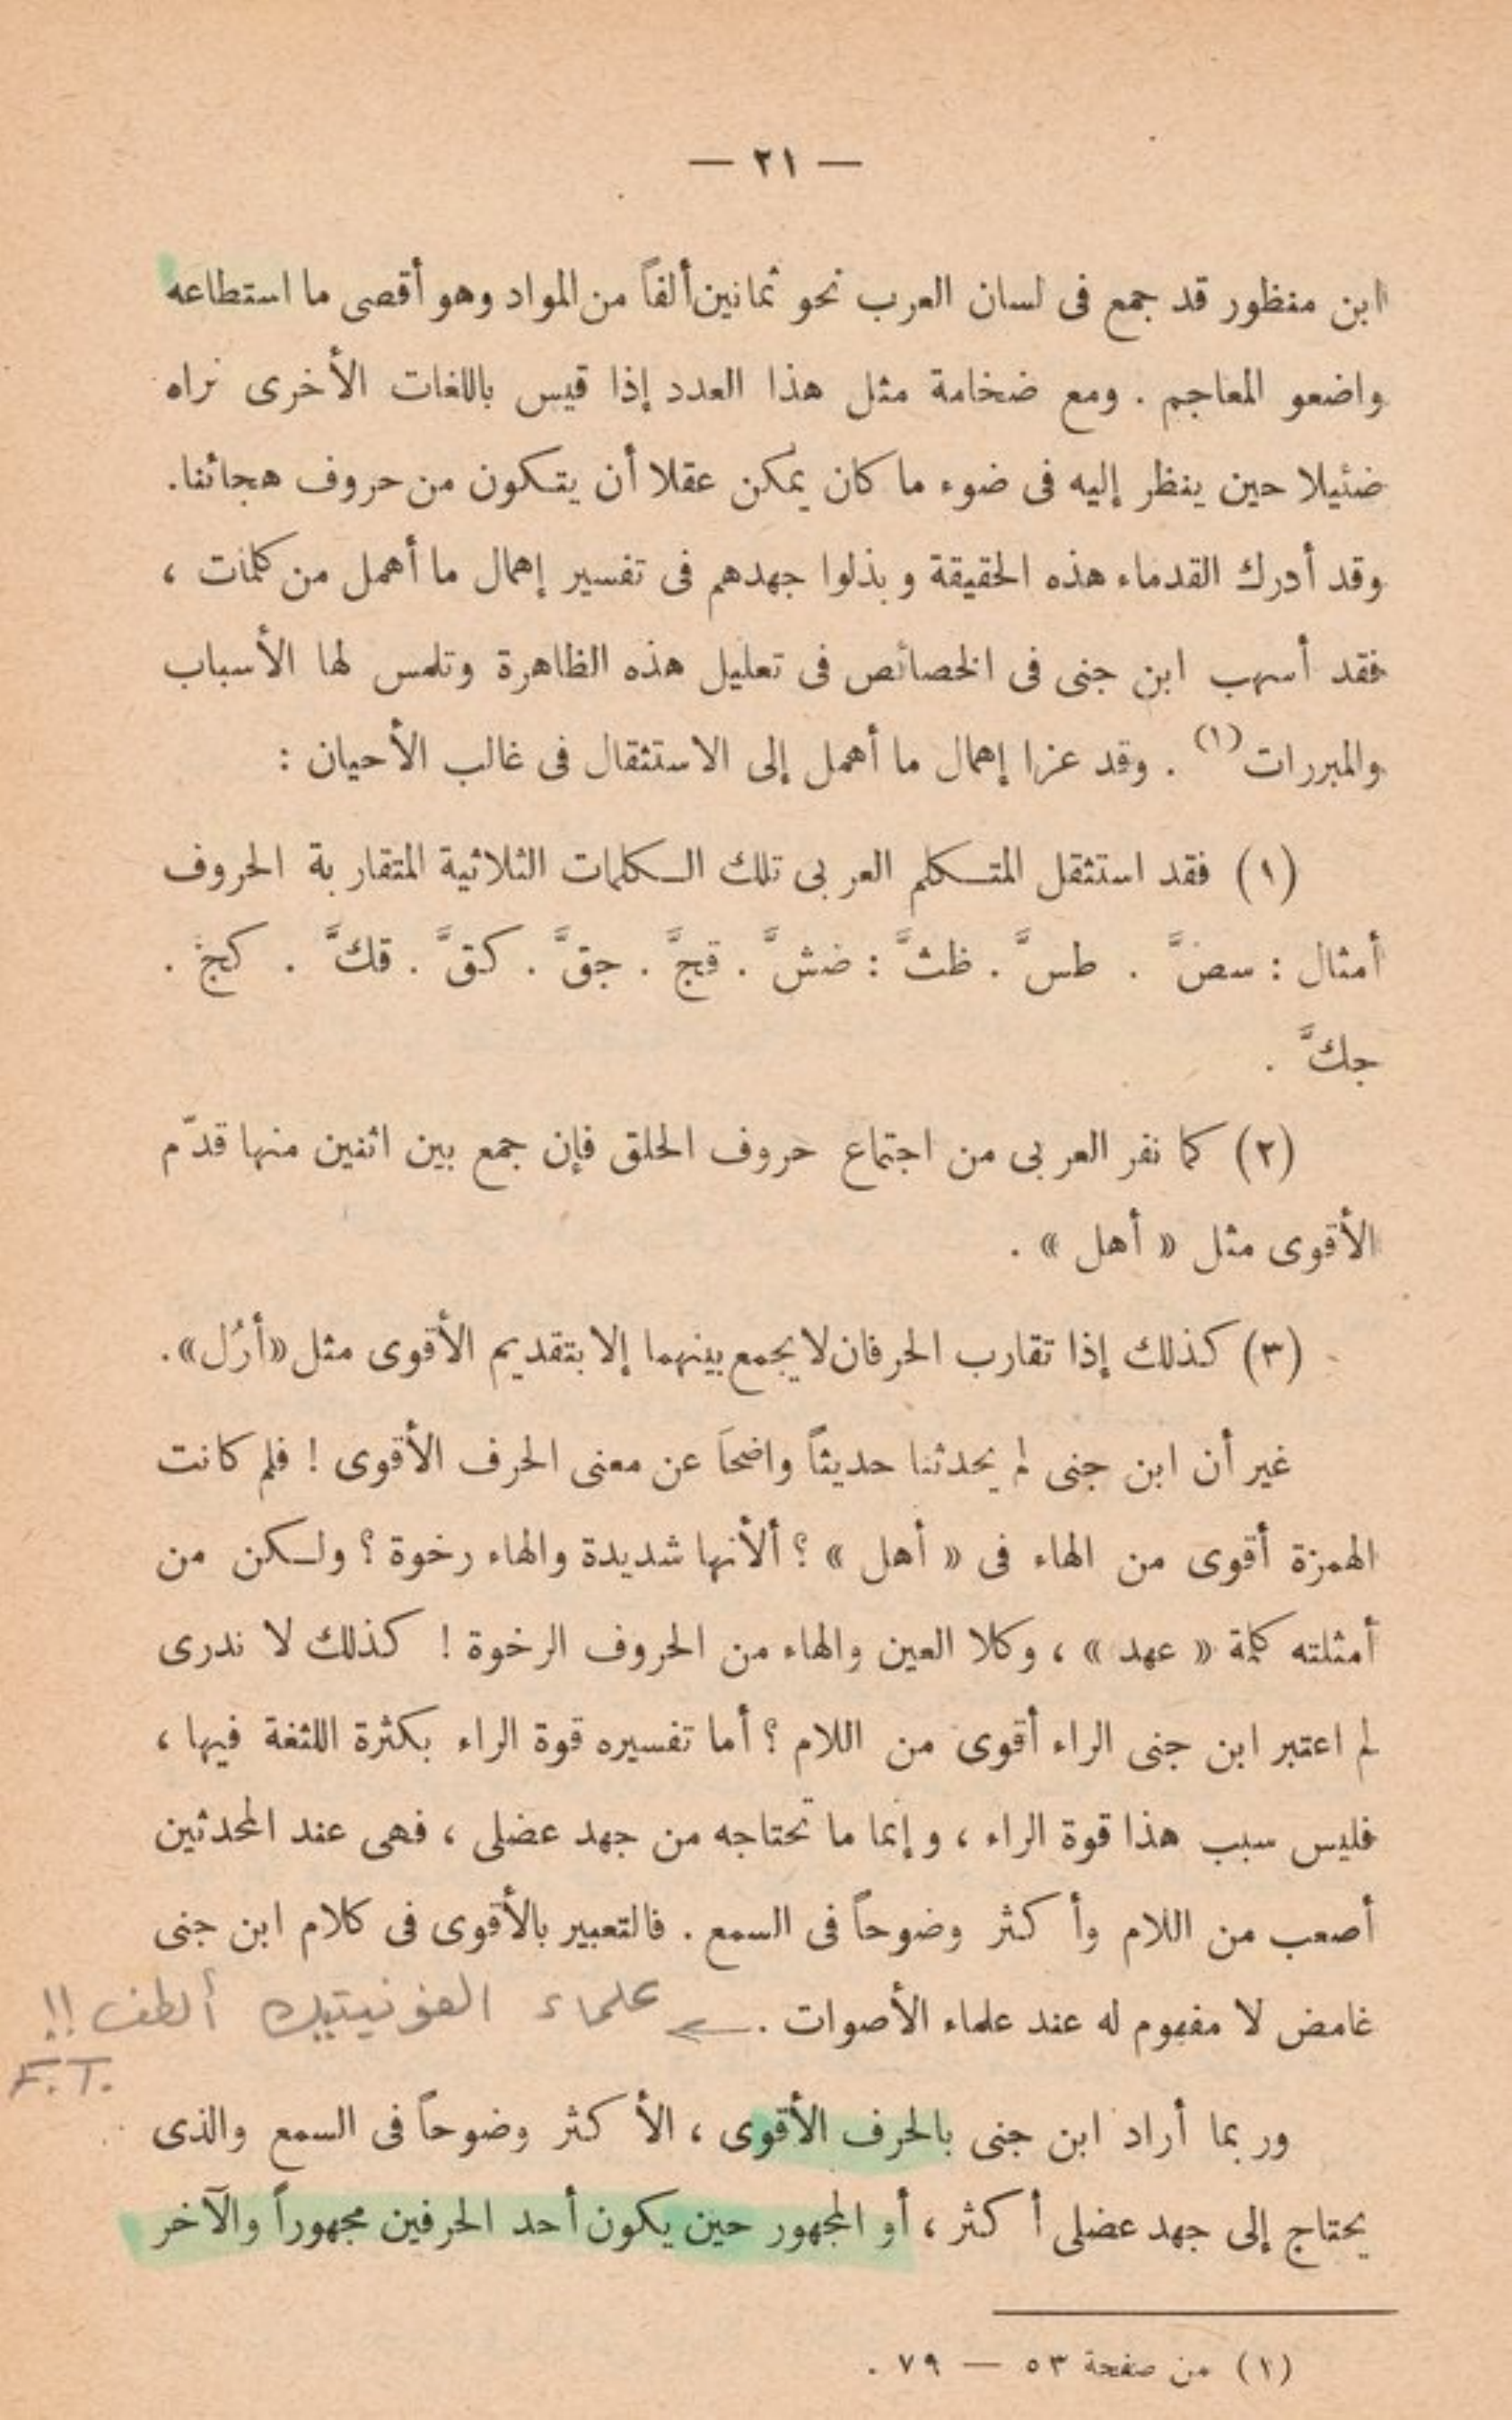 — ٢١ —
ابن منظور قد جمع فى لسان العرب نحو ثمانين ألفاً من المواد وهو أقصى ما استطاعه
واضعو المعاجم . ومع ضخامة مثل هذا العدد إذا قيس باللغات الأخرى نراه
ضئيلا حين ينظر إليه فى ضوء ما كان يمكن عقلا أن يتكون من حروف هجائنا.
وقد أدرك القدماء هذه الحقيقة وبذلوا جهدهم فى تفسير إهمال ما أهمل من كلمات ،
فقد أسهب ابن جنى فى الخصائص فى تعليل هذه الظاهرة وتلمس لها الأسباب
والمبررات (١) . وقد عزا إهمال ما أهمل إلى الاستثقال فى غالب الأحيان :
(١) فقد استثقل المتكلم العربى تلك الكلمات الثلاثية المتقاربة الحروف
أمثال : سضَّ . طسَّ . ظثَّ : ضشَّ . قجَّ . جقَّ . كقَّ . قكَّ . كج .
جكَّ .
(٢) كما نفر العربى من اجتماع حروف الحلق فإن جمع بين اثنين منها قدّم
الأقوى مثل « أهل » .
(٣) كذلك إذا تقارب الحرفان لا يجمع بينهما إلا بتقديم الأقوى مثل «أرُل».
غير أن ابن جنى لم يحدثنا حديثاً واضحاَ عن معنى الحرف الأقوى ! فلم كانت
الهمزة أقوى من الهاء فى « أهل » ؟ ألأنها شديدة والهاء رخوة ؟ ولكن من
أمثلته كلمة « عهد » ، وكلا العين والهاء من الحروف الرخوة ! كذلك لا ندرى
لم اعتبر ابن جنى الراء أقوى من اللام ؟ أما تفسيره قوة الراء بكثرة اللثغة فيها ،
فليس سبب هذا قوة الراء ، وإنما ما تحتاجه من جهد عضلى ، فهى عند المحدثين
أصعب من اللام وأكثر وضوحاً فى السمع . فالتعبير بالأقوى فى كلام ابن جنى
غامض لا مفهوم له عند علماء الأصوات . ← علماء الفونيتيك ألطف !!
F.T.
وربما أراد ابن جنى بالحرف الأقوى ، الأكثر وضوحاً فى السمع والذى
يحتاج إلى جهد عضلى أكثر ، أو المجهور حين يكون أحد الحرفين مجهوراً والآخر
(١) من صفحة ٥٣ — ٧٩ .